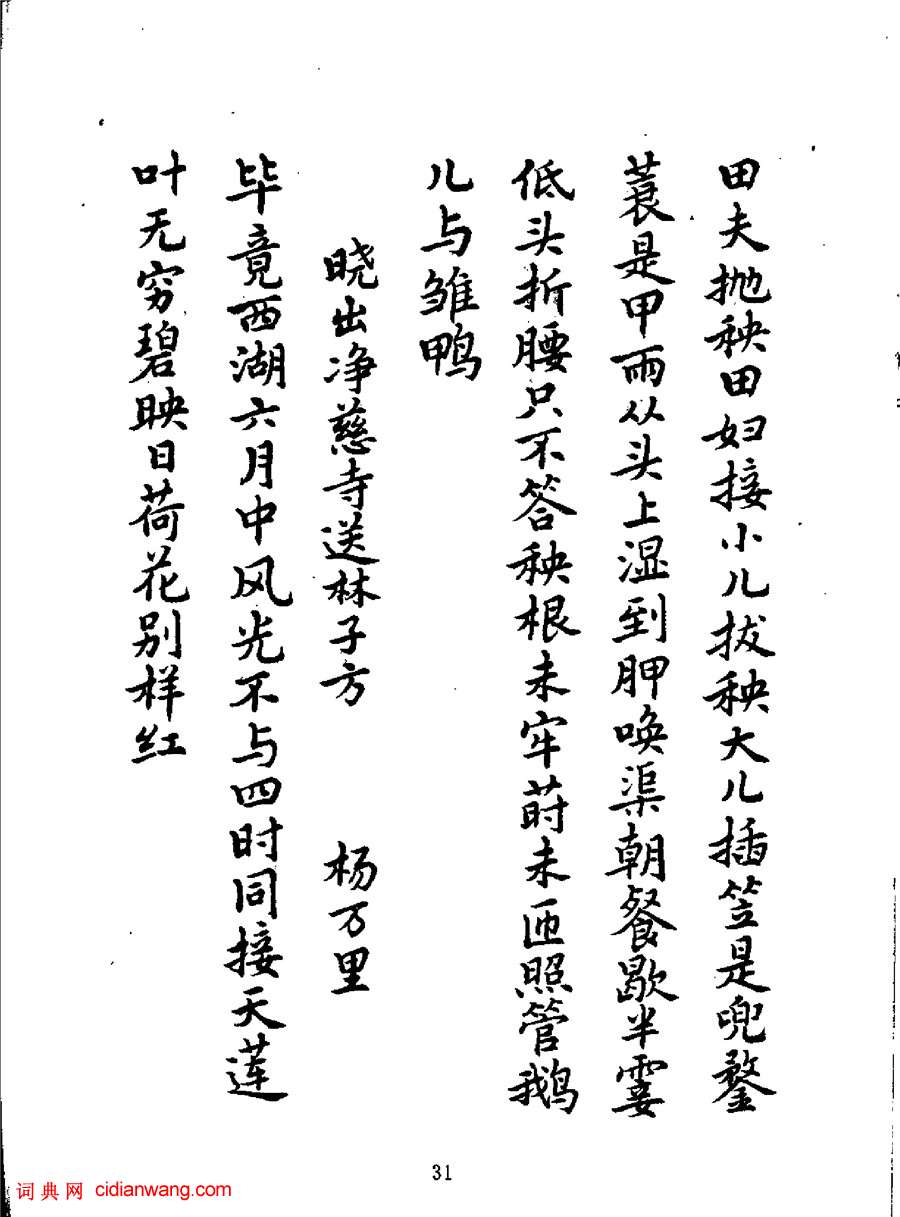 田夫抛秧田妇接小儿拔秧大儿插笠是兜鍪
蓑是甲雨从头上湿到胛唤渠朝餐歇半霎
低头折腰只不答秧根未牢莳未匝照管鹅
儿与雏鸭
晓出净慈寺送林子方 杨万里
毕竟西湖六月中风光不与四时同接天莲
叶无穷碧映日荷花别样红
31
词典网 cidianwang.com